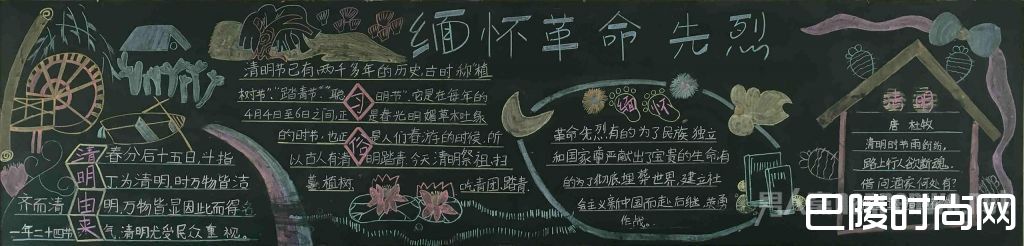 缅怀革命先烈
清明由来
春分后十五日,斗指
丁为清明,时万物皆洁
齐而清明,万物皆显因此而得名
一年二十四节气,清明尤受民众重视。
习俗
清明节已有两千多年的历史,古时称植
树节"、"踏青节""聪明节",它是在每年的
4月4日至6日之间,正是春光明媚草木吐绿
的时节,也正是人们春游的时候,所
以古人有清明踏青,今天清明祭祖,扫
墓,植树, 吃青团,踏青.
缅怀
革命先烈有的为了民族独立
和国家尊严献出了宝贵的生命,有
的为了彻底埋葬世界,建立社
会主义新中国而赴后继,英勇
作战。
清明
唐 杜牧
清明时节雨纷纷,
路上行人欲断魂。
借问酒家何处有?
巴陵时尚网